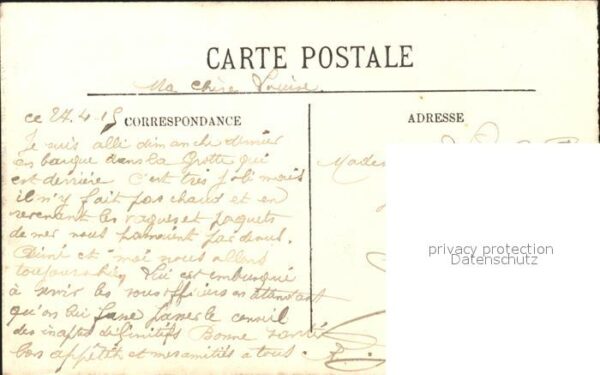 CARTE POSTALE
Ma chère Louise.
ce 27.4.15
CORRESPONDANCE
ADRESSE
Je suis allé dimanche dernier
en barque dans la Grotte qui
est derrière c'est très joli mais
il n'y fait pas chaud et en
revenant les vagues et paquets
de mer nous passaient par dessus.
et moi nous allons
toujours bien Lui est embusqué
à servir les sous officiers en attendant
qu'on lui fasse passer le conseil
des inaptes définitifs Bonne santé
bon appétit et mes amitiés à tous.
Mades
privacy protection
Datenschutz